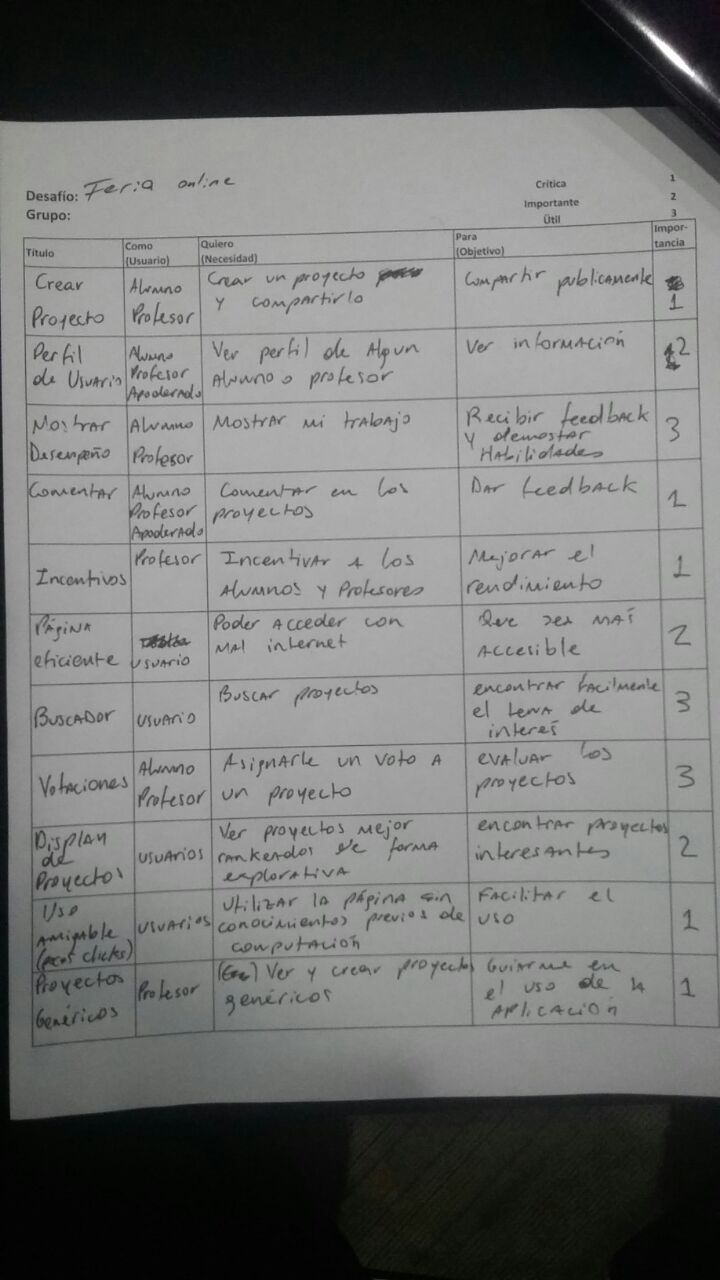 Desafío: Feria online
Grupo:
Crítica 1
Importante 2
Útil 3
Título
Como
(Usuario)
Quiero
(Necesidad)
Para
(Objetivo)
Impor-
tancia
Crear
Proyecto
Alumno
Profesor
Crear un proyecto
y compartirlo
Compartir publicamente
1
Perfil
de Usuario
Alumno
Profesor
Apoderado
Ver perfil de Algun
Alumno o profesor
Ver información
2
Mostrar
Desempeño
Alumno
Profesor
Mostrar mi trabajo
Recibir feedback
y demostar
Habilidades
3
Comentar
Alumno
Profesor
Apoderado
Comentar en los
proyectos
Dar feedback
1
Incentivos
Profesor
Incentivar a los
Alumnos y Profesores
Mejorar el
rendimiento
1
Página
eficiente
usuario
Poder Acceder con
mal internet
Que sea más
Accesible
2
Buscador
usuario
Buscar proyectos
encontrar facilmente
el tema de
interés
3
Votaciones
Alumno
Profesor
Asignarle un voto a
un proyecto
evaluar los
proyectos
3
Display
de
Proyectos
usuarios
Ver proyectos mejor
rankeados de forma
explorativa
encontrar proyectos
interesantes
2
Uso
Amigable
(pocos clicks)
usuarios
Utilizar la página sin
conocimientos previos de
computación
Facilitar el
uso
1
Proyectos
Genéricos
Profesor
Ver y crear proyectos
genéricos
Guiarme en
el uso de la
Aplicación
1